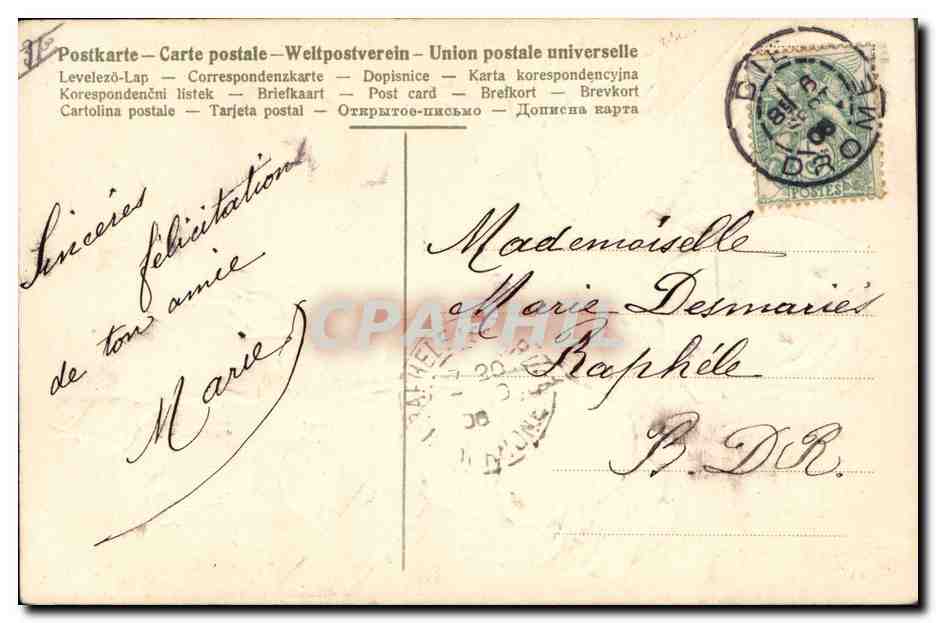 Postkarte — Carte postale — Weltpostverein — Union postale universelle
Levelező-Lap — Correspondenzkarte — Dopisnice — Karta korespondencyjna
Korespondenční listek — Briefkaart — Post card — Brefkort — Brevkort
Cartolina postale — Tarjeta postal — Открытое-письмо — Дописна карта
DIE
06
DROME
POSTES
Sincères
félicitations
de ton amie
Marie
Mademoiselle
Marie Desmariés
Raphéle
B. D R.
CPARAMA
20
06
RHONE